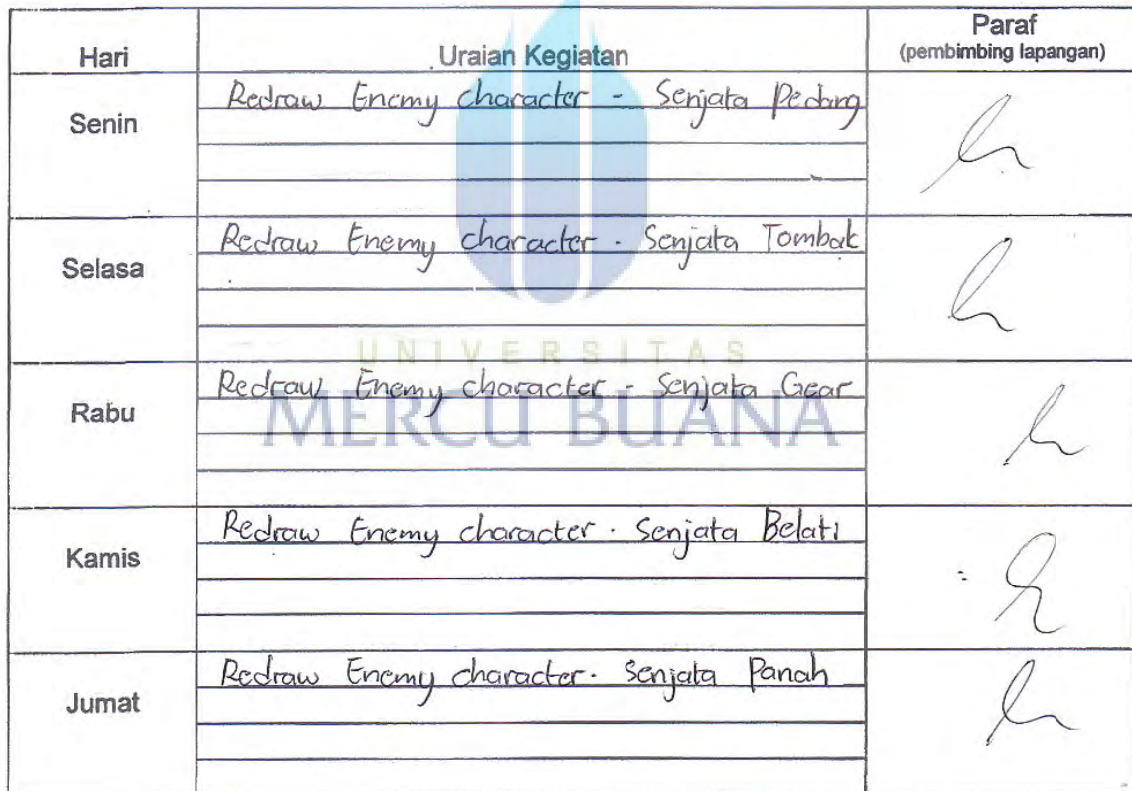 Hari Uraian Kegiatan Paraf
(pembimbing lapangan)
Senin Redraw Enemy character - Senjata Pedang
Selasa Redraw Enemy character - Senjata Tombak
UNIVERSITAS
MERCU BUANA
Rabu Redraw Enemy character - Senjata Gear
Kamis Redraw Enemy character - Senjata Belati
Jumat Redraw Enemy character - Senjata Panah